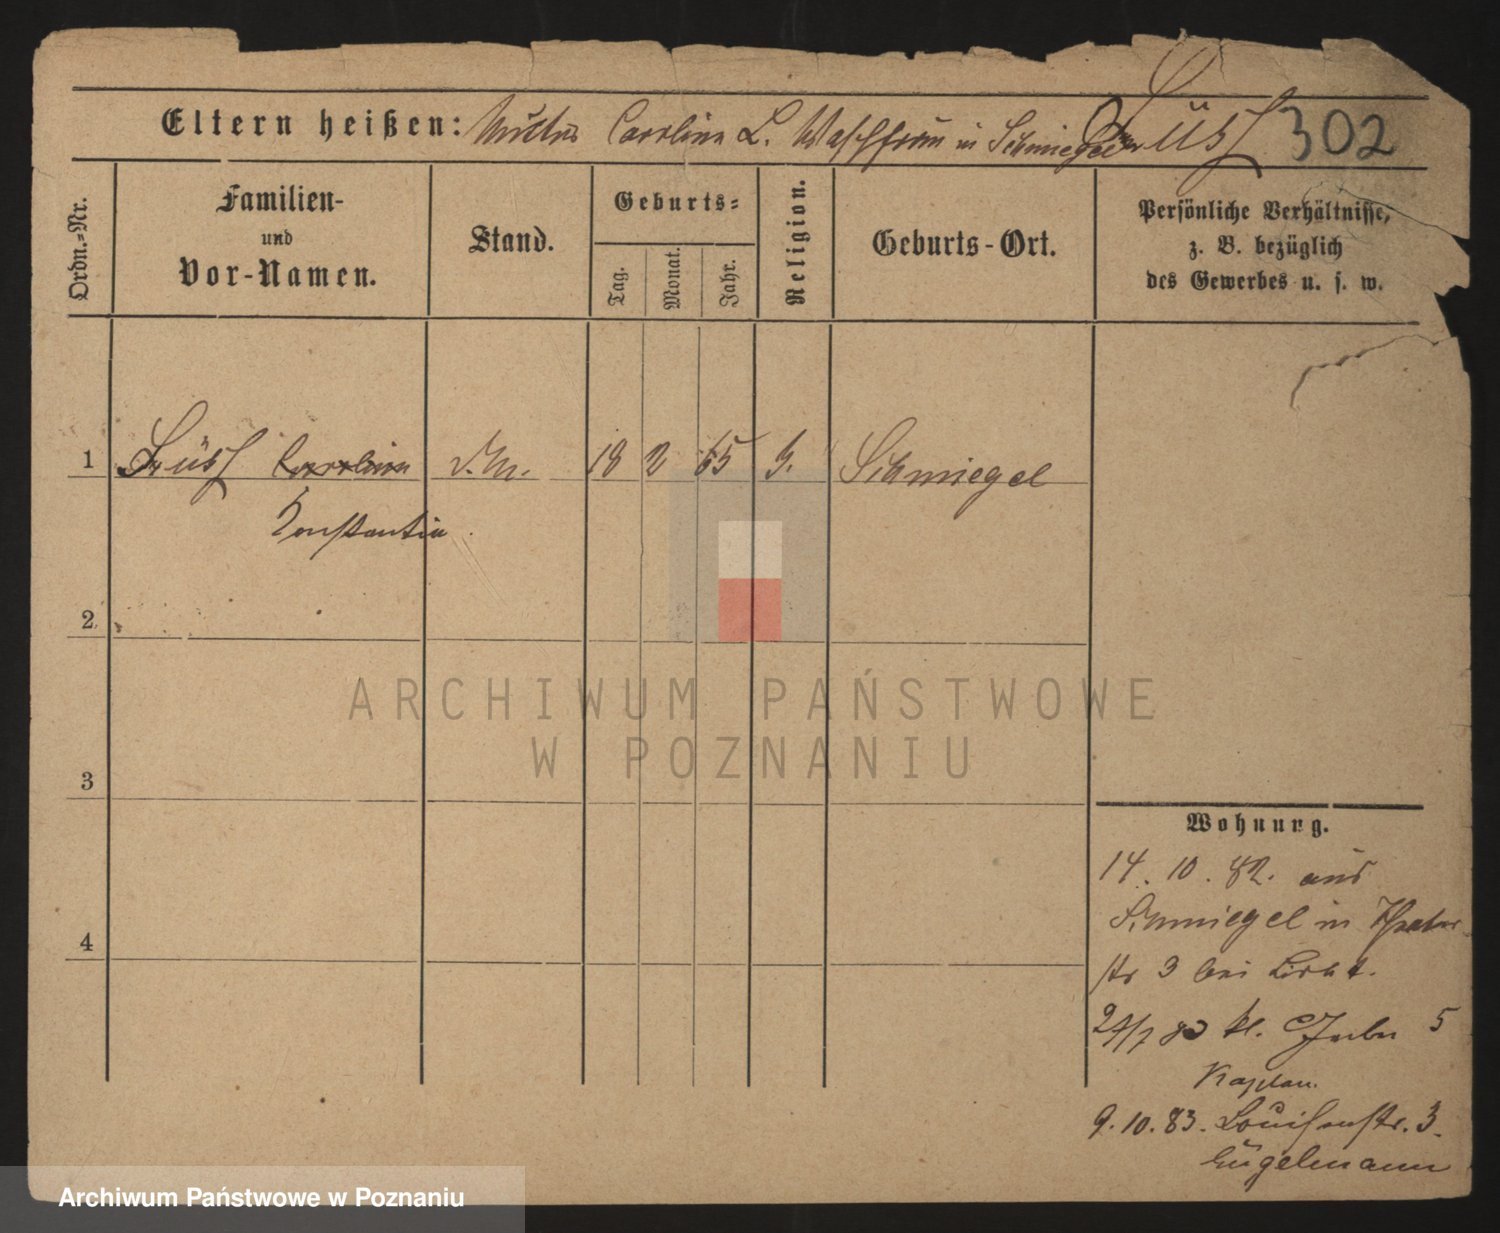 Eltern heißen: Mutter Caroline L. Waschfrau in Schmiegel Lüsch 302
Ordn.-Nr.
Familien-
und
Vor-Namen.
Stand.
Geburts-
Tag.
Monat.
Jahr.
Religion.
Geburts-Ort.
Persönliche Verhältnisse,
z. B. bezüglich
des Gewerbes u. s. w.
1 Caroline 18 2 65 Schmiegel
Konstantin
2
3
4
Wohnung.
14. 10. 82. aus
Schmiegel in Theater
str 3 bei
kl. 5
Kaplan.
9. 10. 83. Louisenstr. 3.
Engelmann
ARCHIWUM PAŃSTWOWE
W POZNANIU
Archiwum Państwowe w Poznaniu